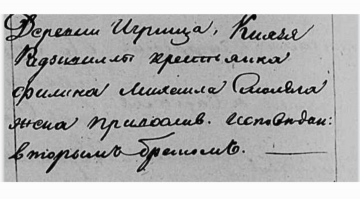 Деревни Игрица, Князя
Радзивиллы крестьянка
Филина Михаила
жена православ. исповѣдан:
вторымъ бракомъ.